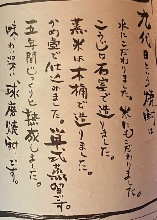 九代目という焼酎は
水にこだわりました。米にもこだわりました。
こうじは石室で造りました。
蒸米は木桶で造りました。
かめ壺で仕込みました。単式蒸留す。
五年間じっくりと熟成しました。
味わい深い球磨焼酎です。